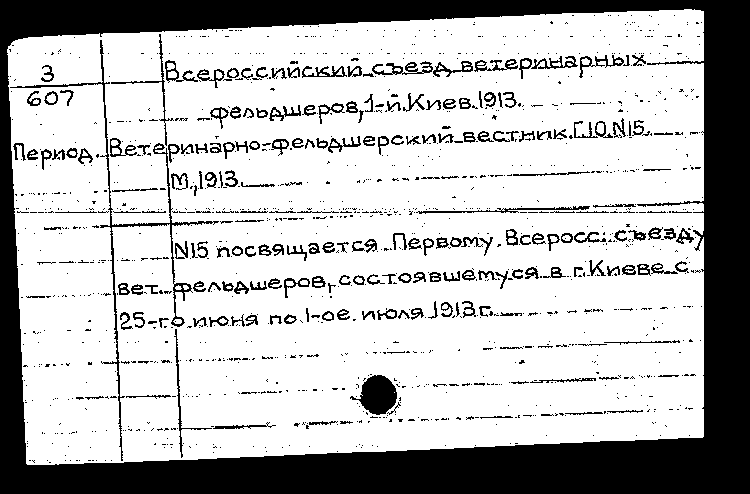 3
607
Всероссийский съезд ветеринарных
фельдшеров, 1-й. Киев. 1913.
Период. Ветеринарно-фельдшерский вестник. Г.10. N15.
М., 1913.
N15 посвящается Первому. Всеросс. съезду
вет. фельдшеров, состоявшемуся в г. Киеве с
25-го июня по 1-ое. июля 1913 г.